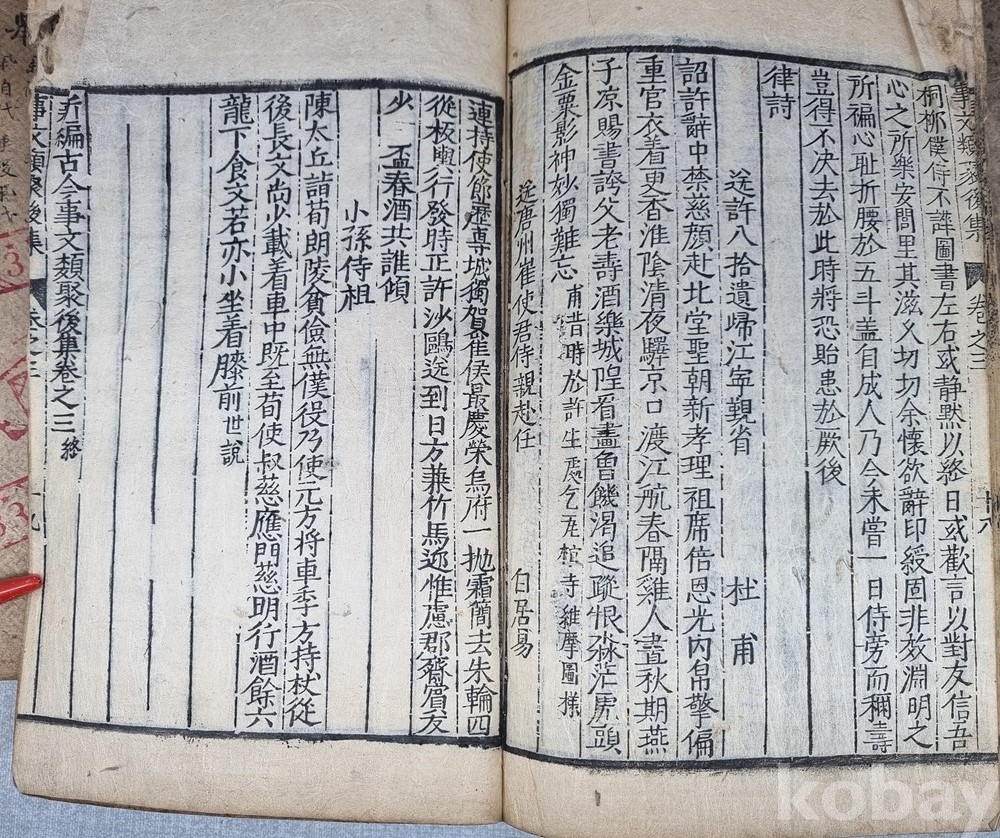 事文類聚後集 卷之三 十八
桐椰僕侍不譁圖書左右或静默以終日或歡言以對友信吾
心之所樂安閭里其滋久切切余懷欲辭印綬固非效淵明之
所褊心耻折腰於五斗盖自成人乃今未嘗一日侍旁而稱壽
豈得不决去於此時將恐貽患於厥後
律詩
送許八拾遺歸江寧覲省 杜甫
詔許辭中禁慈顔赴北堂聖朝新孝理祖席倍恩光内帛擎偏
重官衣着更香淮陰清夜驛京口渡江航春隔雞人晝秋期燕
子凉賜書誇父老壽酒樂城隍看畫曾饑渴追蹤恨淼茫虎頭
金粟影神妙獨難忘 甫昔時於許生處乞瓦棺寺維摩圖樣
送唐州崔使君侍親赴任 白居易
連持使節歷專城獨賀崔侯最慶榮烏府一抛霜簡去朱輪四
從板輿行發時正許沙鷗送到日方兼竹馬迎惟慮郡齋賓友
少 盃春酒共誰傾
小孫侍祖
陳太丘詣荀朗陵貧儉無僕役乃使元方將車季方持杖從
後長文尚少載着車中既至荀使叔慈應門慈明行酒餘六
龍下食文若亦小坐着膝前世說
新編古今事文類聚後集卷之三 終
事文類聚後集 卷之三 十九
kobay